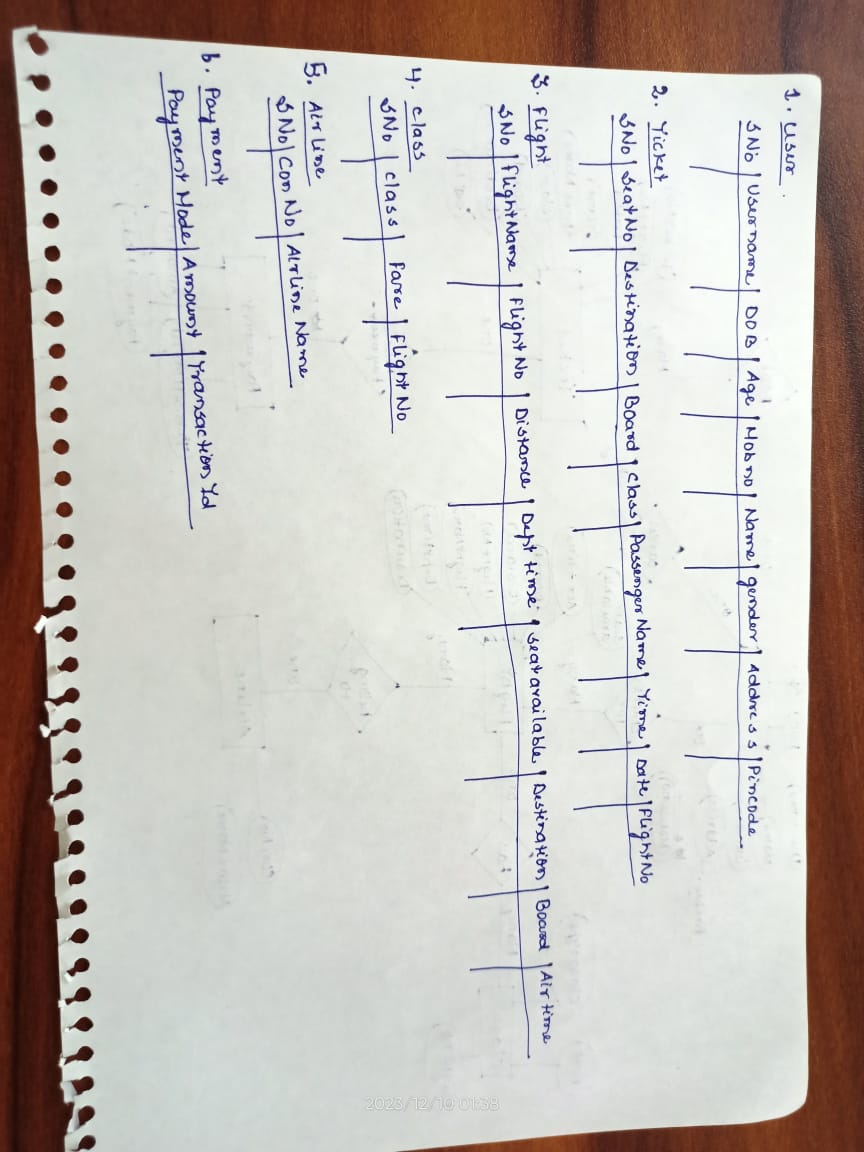 1. User
SNo | Username | DOB | Age | Mobno | Name | gender | Address | Pincode
2. Ticket
SNo | SeatNo | Destination | Board | Class | Passenger Name | Time | Date | FlightNo
3. Flight
SNo | Flight Name | Flight No | Distance | Dept time | Seat available | Destination | Board | Air time
4. Class
SNo | Class | Fare | Flight No
5. Airline
SNo | Con No | Airline Name
6. Payment
Payment Mode | Amount | Transaction Id
2023/12/10 01:38